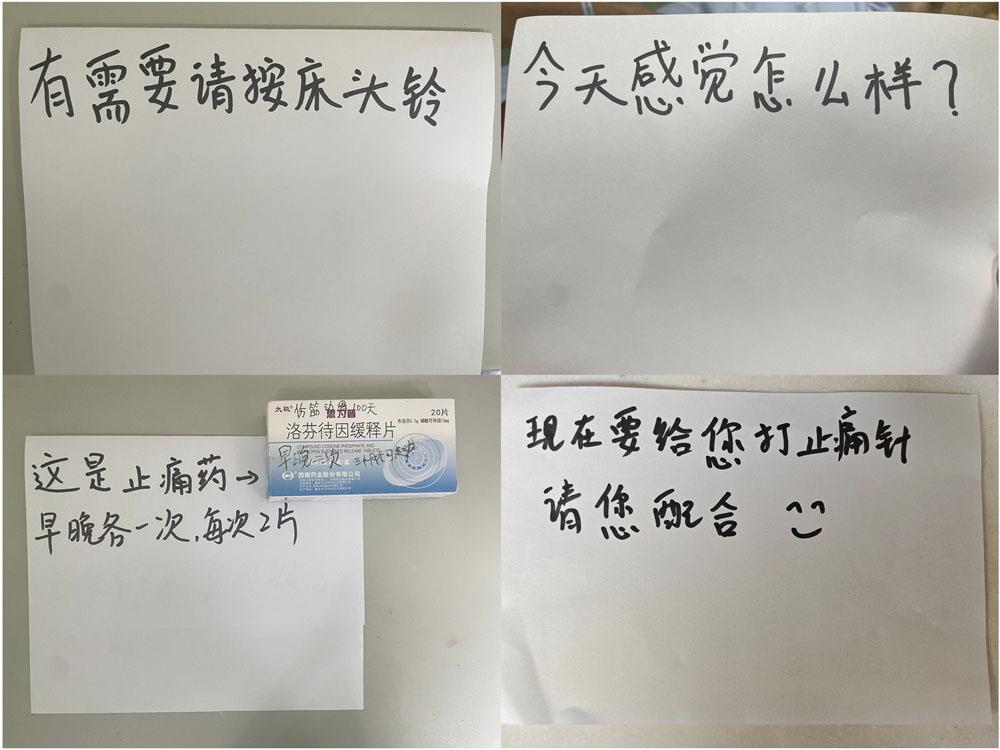 有需要请按床头铃
今天感觉怎么样？
这是止痛药→
早晚各一次，每次2片
太极®
伤筋动骨100天
思为普
20片
布洛芬0.2g 磷酸可待因13mg
洛芬待因缓释片
COMPOUND CODEINE PHOSPHATE AND
IBUPROFEN SUSTAINED RELEASE TABLETS
早晚一次
西南药业股份有限公司
现在要给您打止痛针
请您配合